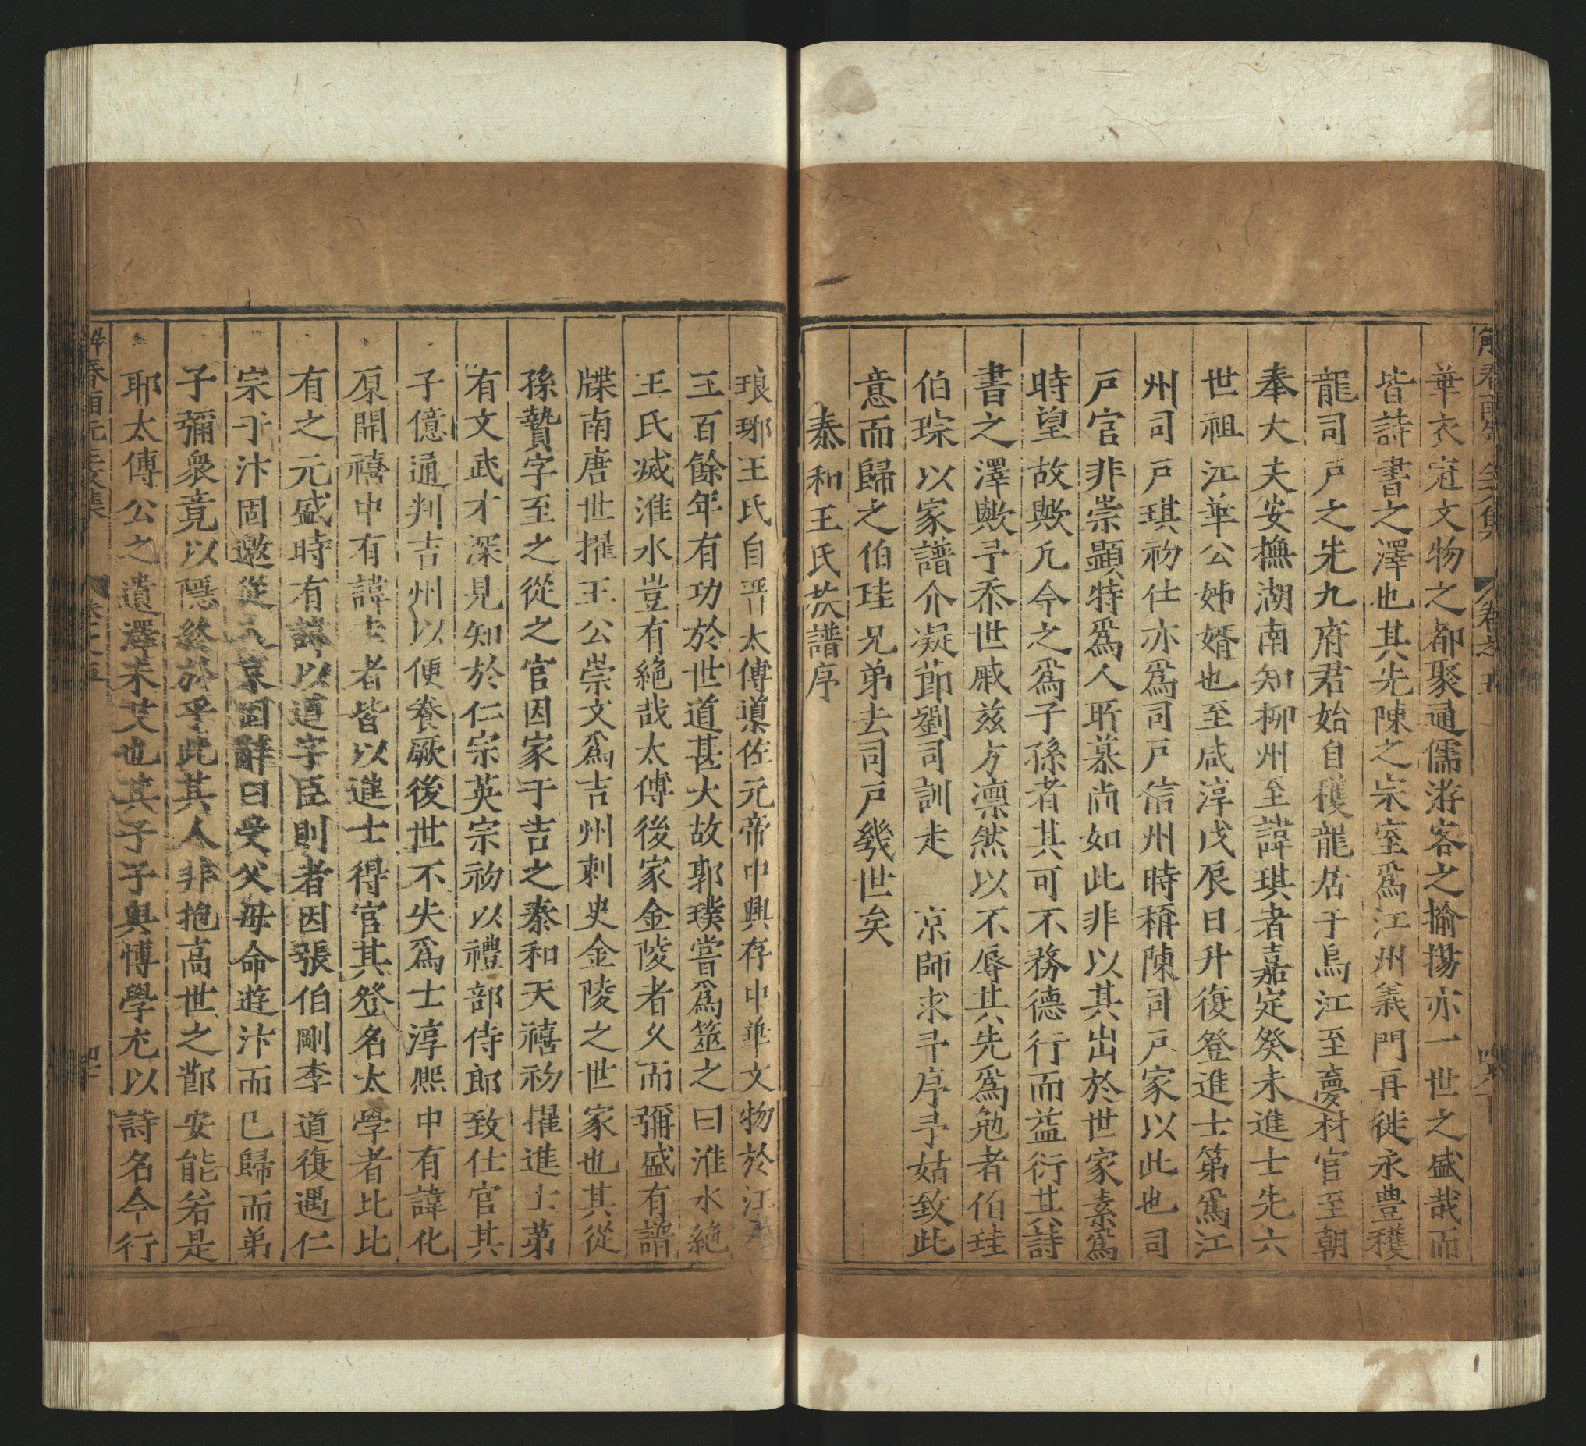 華衣冠文物之都聚通儒游客之揄揚亦一世之盛哉而
皆詩書之澤也其先陳之宗室爲江州義門再徙永豊穫
龍司戸之先九府君始自穫龍居于烏江至憂村官至朝
奉大夫安撫湖南知柳州至諱琪者嘉定癸未進士先六
世祖江華公姊婿也至咸淳戊辰日升復登進士第爲江
州司戸琪初仕亦爲司戸信州時稱陳司戸家以此也司
戸官非崇顯特爲人所慕尚如此非以其出於世家素篤
時望故歟凡今之爲子孫者其可不務德行而益衍其詩
書之澤歟予忝世戚茲方凛然以不辱其先爲勉者伯珪
伯琮以家譜介凝莭劉司訓走 京師求予序予姑致此
意而歸之伯珪兄弟去司戸幾世矣
泰和王氏族譜序
琅琊王氏自晋太傅導佐元帝中興存中華文物於江
三百餘年有功於世道甚大故郭璞嘗爲筮之曰淮水絶
王氏滅淮水豈有絶哉太傅後家金陵者久而彌盛有譜
牒南唐世擢王公崇文爲吉州刺史金陵之世家也其從
孫贄字至之從之官因家于吉之泰和天禧初擢進士第
有文武才深見知於仁宗英宗初以禮部侍郎致仕官其
子億通判吉州以便養厥後世不失爲士淳熙中有諱化
原開禧中有諱圭者皆以進士得官其登名太學者比比
有之元盛時有諱以道字臣則者因張伯剛李道復遇仁
宗于汴固邀從入京固辭曰受父母命遊汴而已歸而弟
子彌衆竟以隱終於乎此其人非抱高世之節安能若是
耶太傅公之遺澤未艾也其子子與博學尤以詩名今行